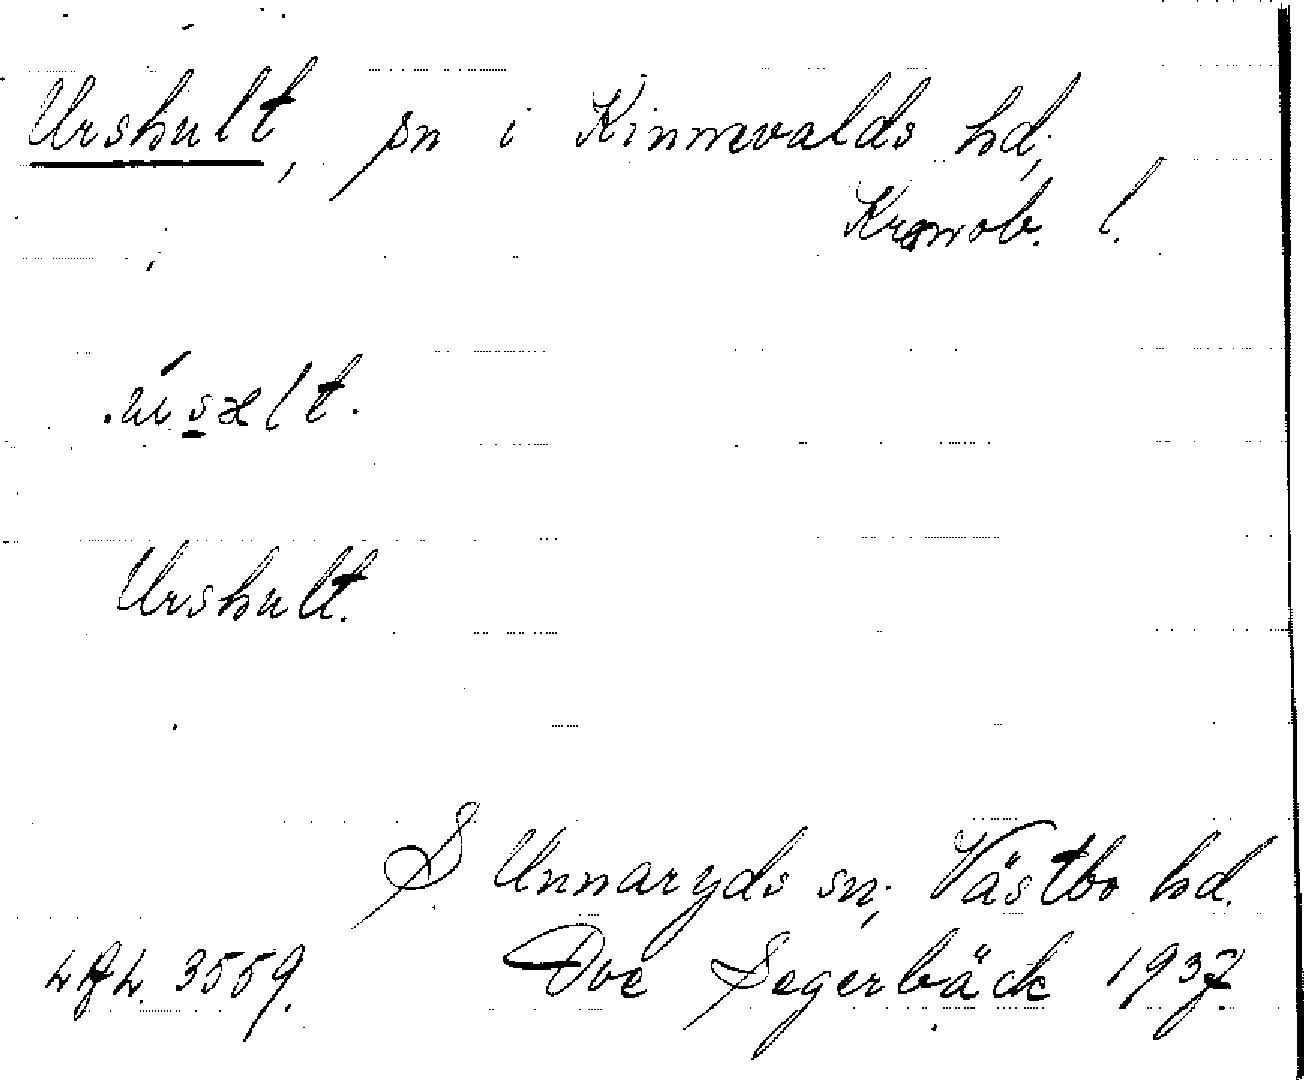 Urshult, sn i Kinnevalds hd,
Kronob. l.
Urshult.
S Unnaryds sn, Västbo hd.
3559. Ove Segerbäck 1937.